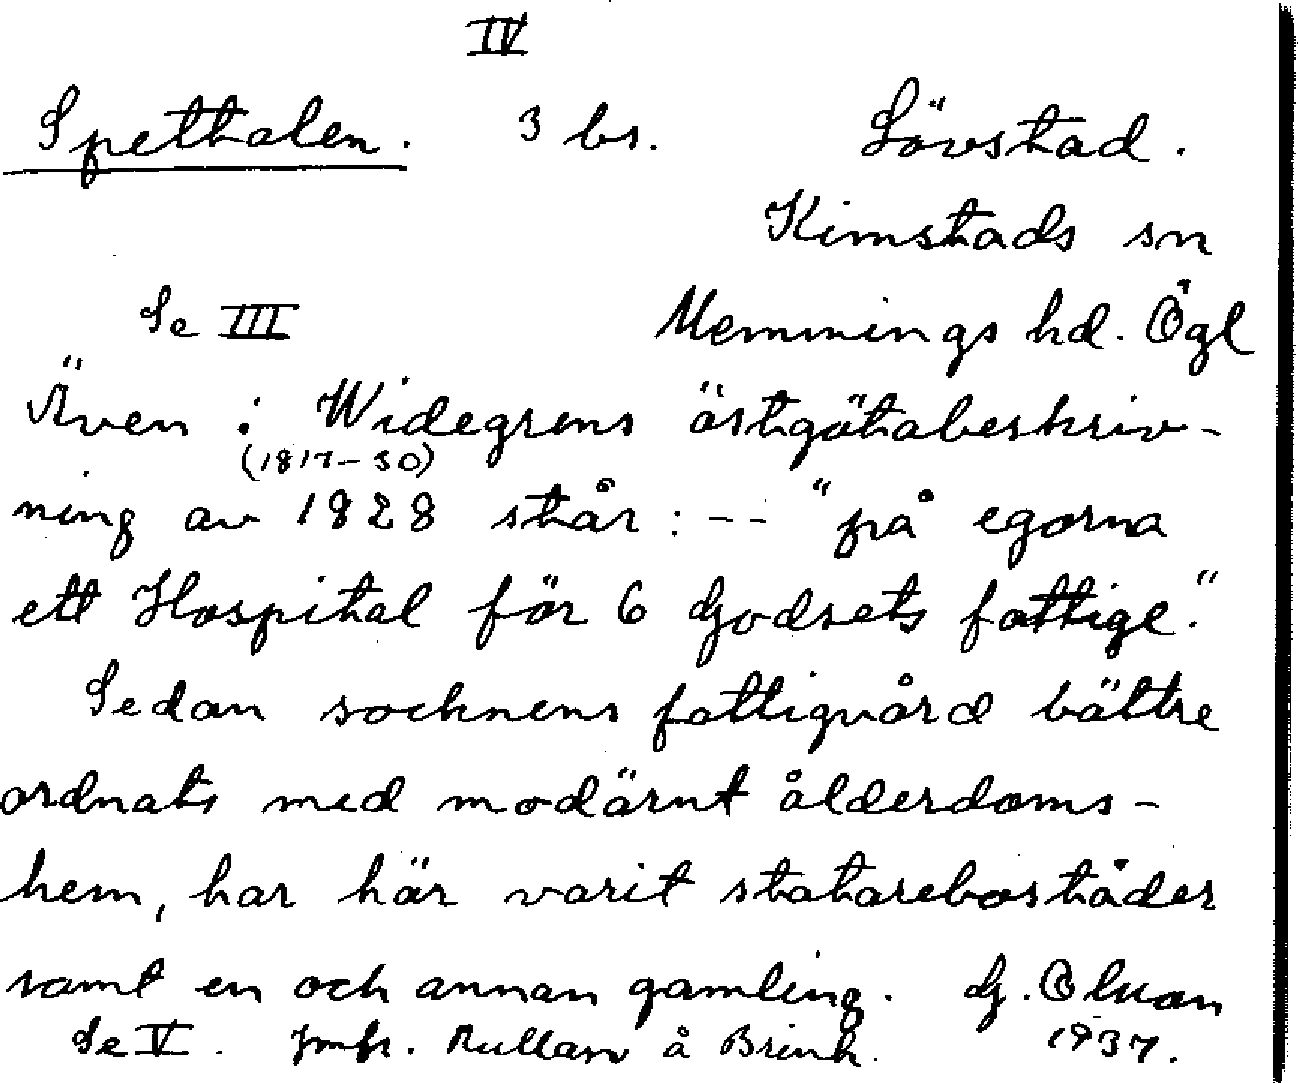 IV
Spettalen. 3 bs. Lövstad.
Kimstads sn
Se III Memmings hd. Ögl
Även i Widegrens östgötabeskriv-
(1817-30)
ning av 1828 står: -- "på egorna
ett Hospital för 6 Godsets fattige."
Sedan socknens fattigvård bättre
ordnats med modärnt ålderdoms-
hem, har här varit statarebostäder
samt en och annan gamling. G. Olsson
Se V. Jmfr. Rullan å Brink. 1937.